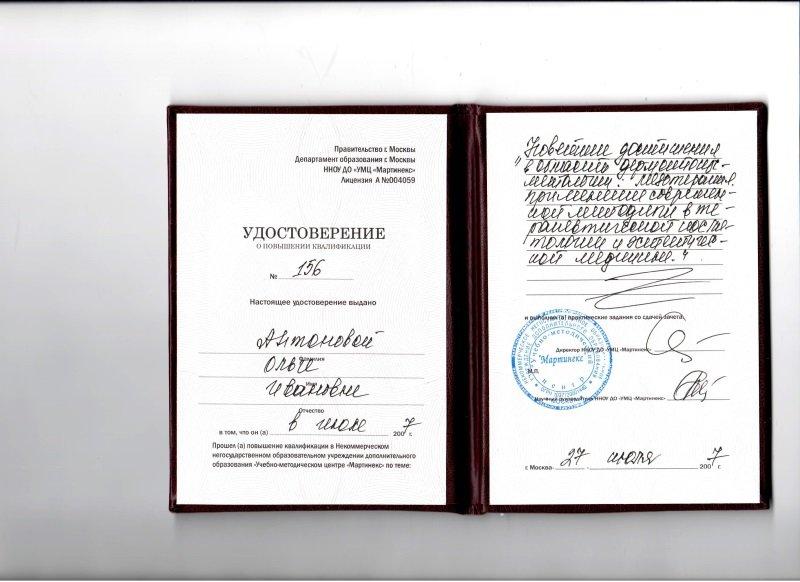 Правительство г. Москвы
Департамент образования г. Москвы
ННОУ ДО «УМЦ «Мартинекс»
Лицензия А №004059
УДОСТОВЕРЕНИЕ
О ПОВЫШЕНИИ КВАЛИФИКАЦИИ
№ 156
Настоящее удостоверение выдано
Антоновой
Фамилия
Ольге
Имя
Ивановне
Отчество
в том, что он (а) в июле 2007 г.
Прошел (а) повышение квалификации в Некоммерческом
негосударственном образовательном учреждении дополнительного
образования «Учебно-методическом центре «Мартинекс» по теме:
"Новейшие достижения
в области дермокосме-
тологии. Мезотерапия.
применение современ-
ной методики в те-
рапевтической косме-
тологии и эстетичес-
кой медицине."
и выполнил (а) практические задания со сдачей зачета.
Директор ННОУ ДО «УМЦ «Мартинекс»
М.П.
Научный руководитель ННОУ ДО «УМЦ «Мартинекс»
"Мартинекс"
г. Москва 27 июля 2007 г.